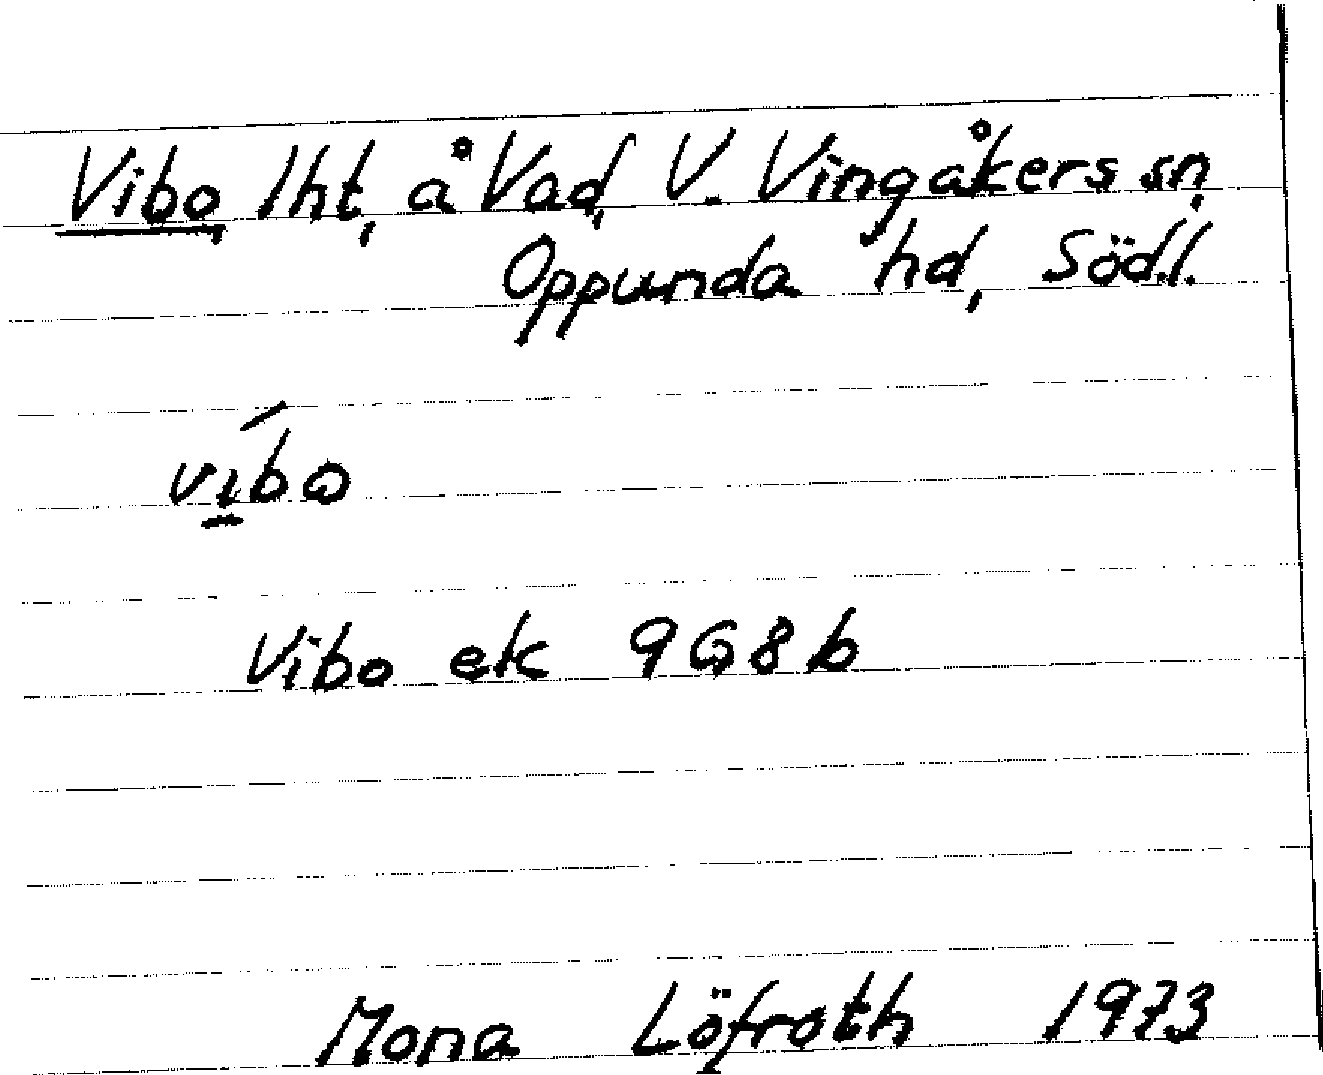 Vibo, lht, å Vad, V. Vingåkers sn,
Oppunda hd, Södl.
vı̱́bɷ
Vibo ek 9G8b
Mona Löfroth 1973